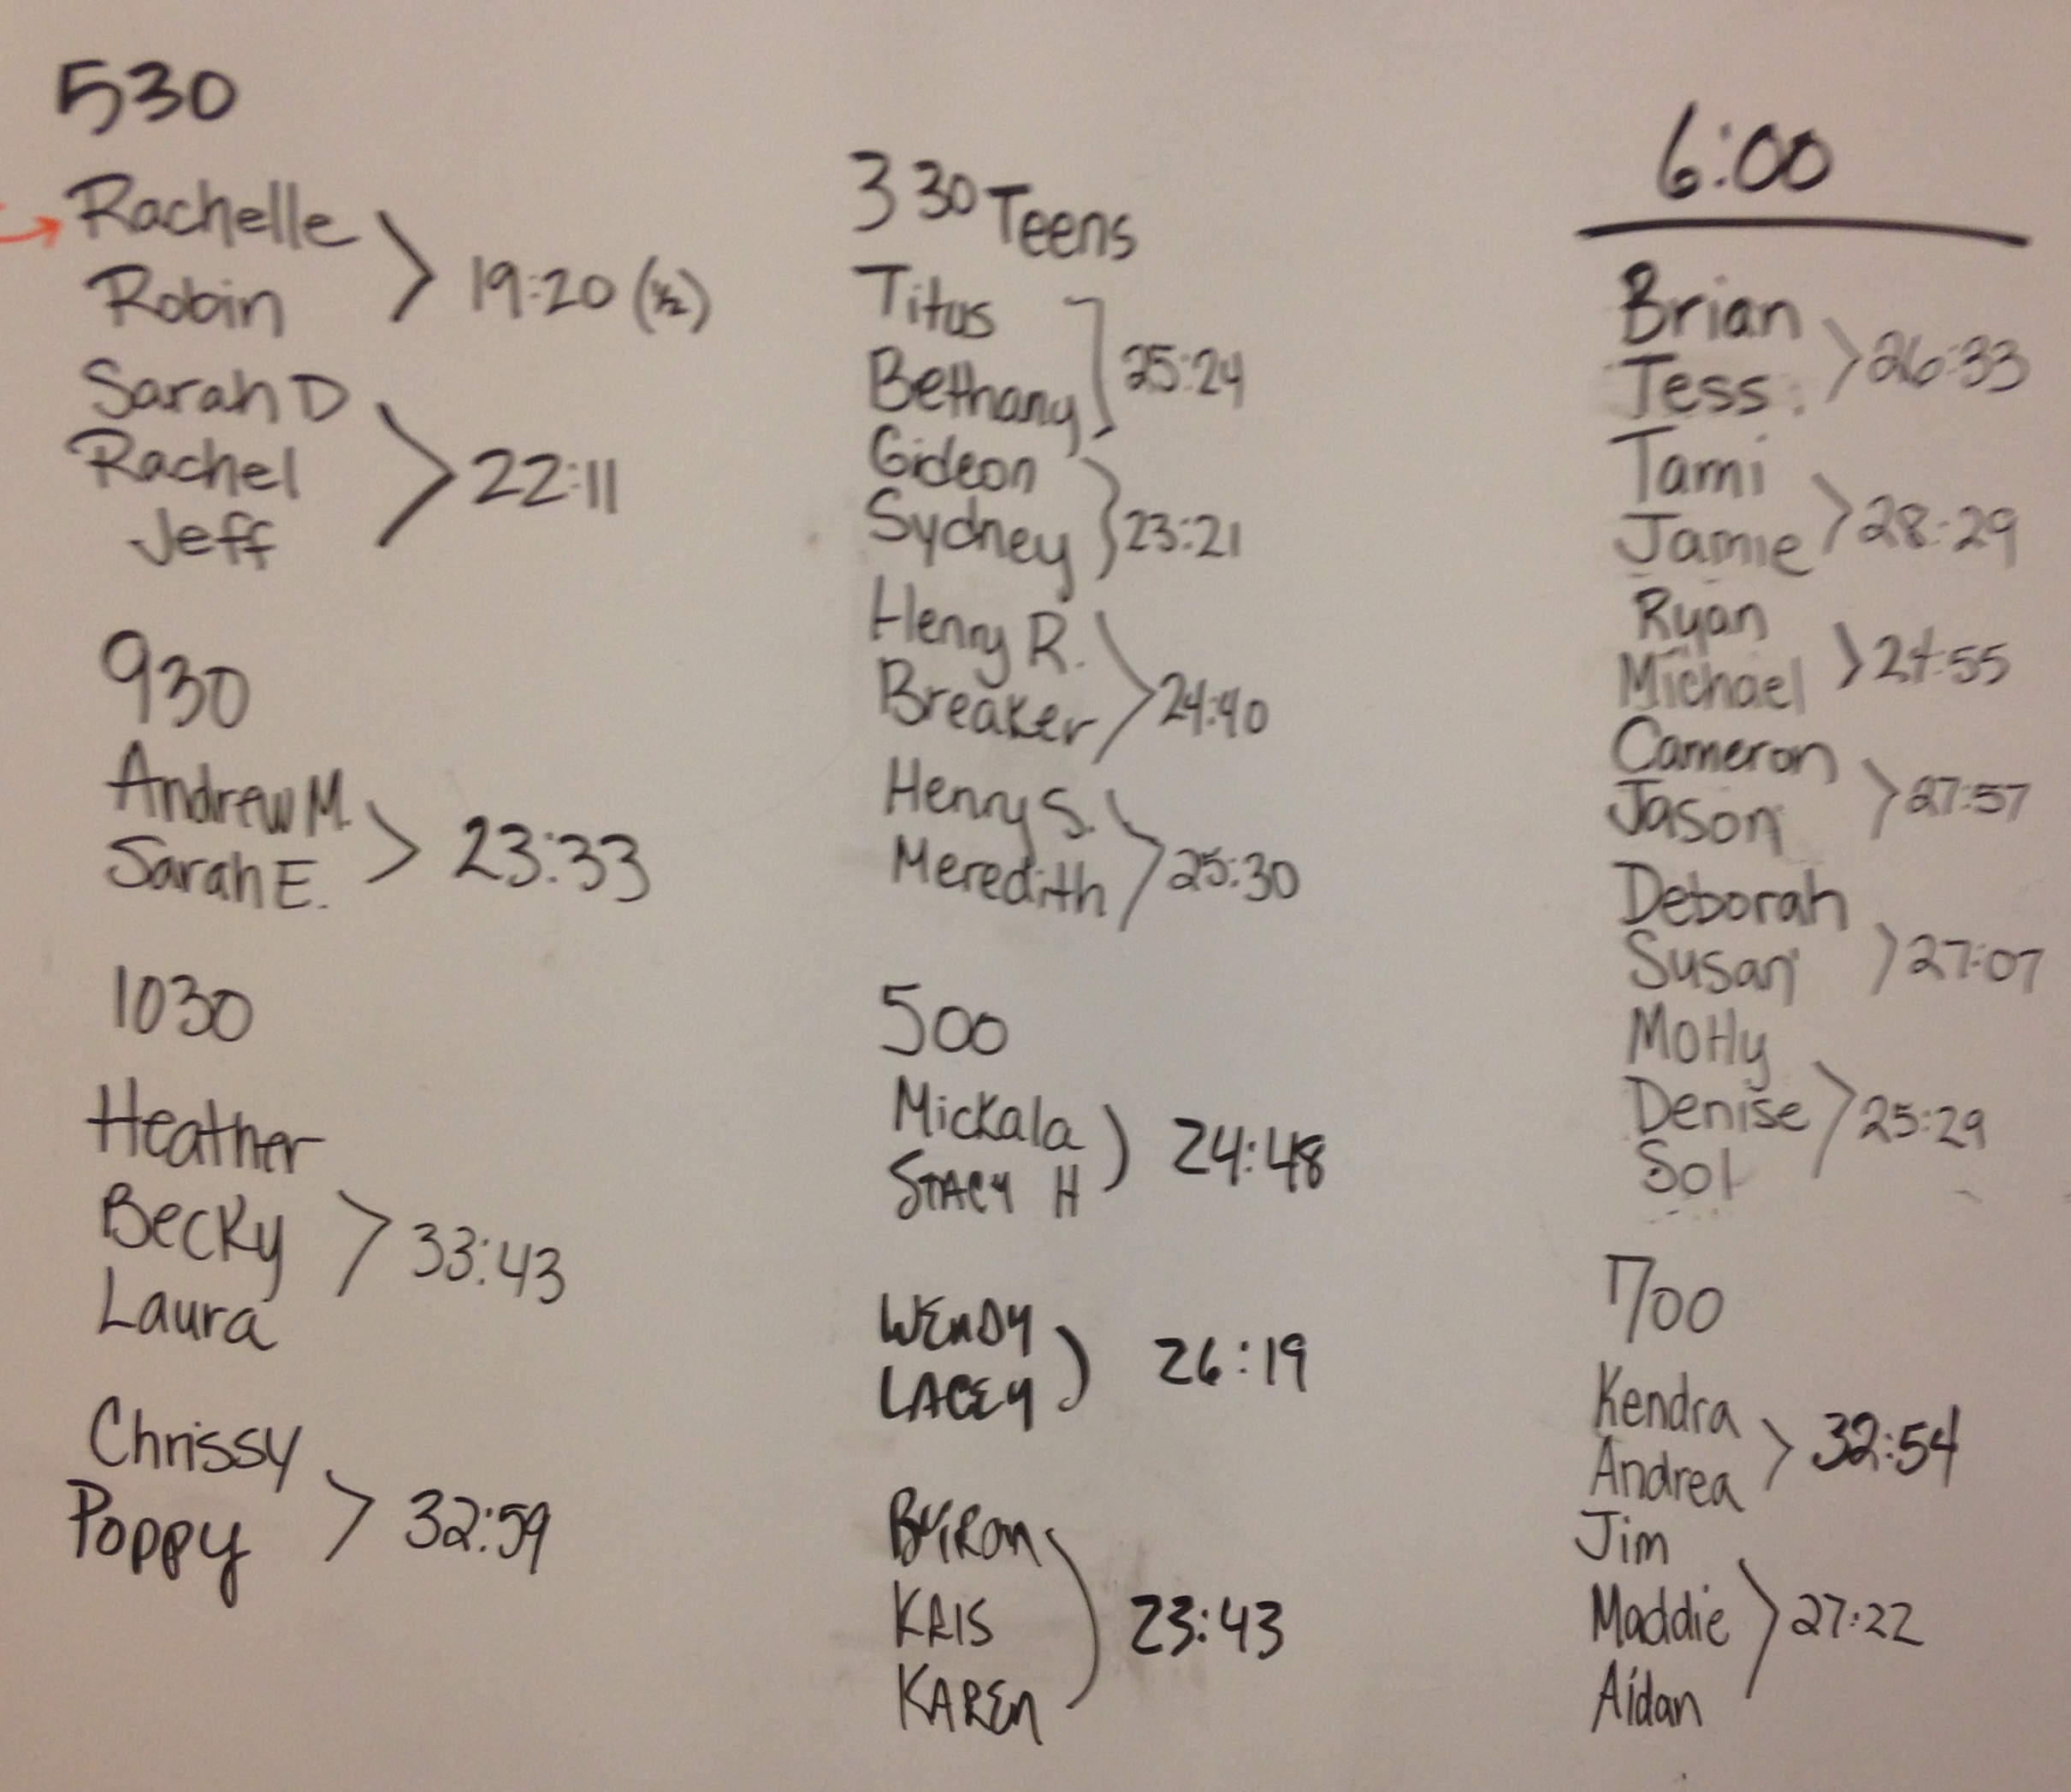 530
Rachelle
Robin
19:20 (½)
Sarah D
Rachel
Jeff
22:11
930
Andrew M.
Sarah E.
23:33
1030
Heather
Becky
Laura
33:43
Chrissy
Poppy
32:59
330 Teens
Titus
Bethany
25:24
Gideon
Sydney
23:21
Henry R.
Breaker
24:40
Henry S.
Meredith
25:30
500
Mickala
STACY H
24:48
WENDY
LACEY
26:19
BYRON
KRIS
KAREN
23:43
6:00
Brian
Tess
26:33
Tami
Jamie
28:29
Ryan
Michael
Cameron
Jason
27:57
Deborah
Susan
27:07
Denise
Sol
25:29
700
Kendra
Andrea
32:54
Jim
Maddie
Aidan
27:22